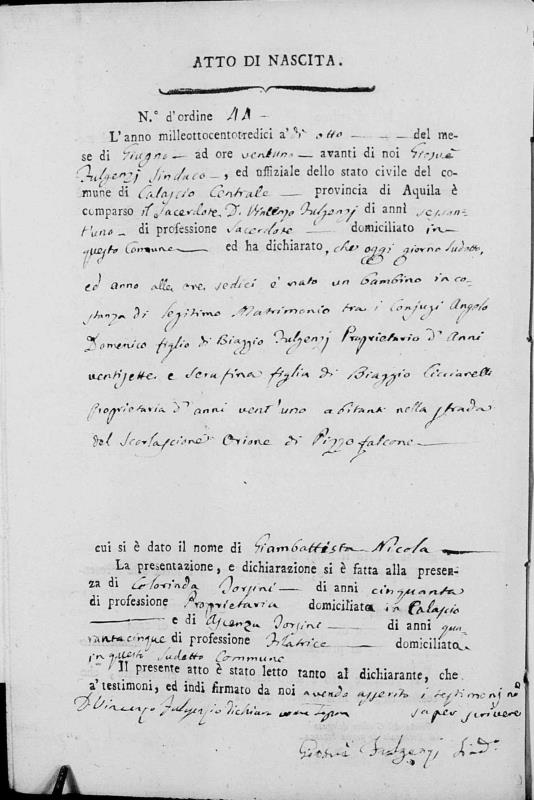 ATTO DI NASCITA.
N.° d'ordine 44
L'anno milleottocentotredici a' dì otto del me-
se di Giugno ad ore ventuno avanti di noi Giosuè
Fulgenzj Sindaco, ed uffiziale dello stato civile del co-
mune di Calascio Centrale provincia di Aquila è
comparso il Sacerdote D. Vincenzo Fulgenzj di anni sessan-
t'uno di professione Sacerdote domiciliato in
questo Comune ed ha dichiarato, che oggi giorno sudetto,
ed anno alle ore sedici è nato un bambino in co-
stanza di legitimo Matrimonio tra i Conjugi Angolo
Domenico figlio di Biaggio Fulgenzj Proprietario d'Anni
ventisette e Serafina figlia di Biaggio Cicciarelli
Proprietaria d'anni vent'uno abitanti nella strada
del Orione di Pizzo falcone
cui si è dato il nome di Giambattista Nicola
La presentazione, e dichiarazione si è fatta alla presen-
za di Colorinda di anni cinquanta
di professione Proprietaria domiciliata in Calascio
e di Ascenza di anni qua-
rantacinque di professione Filatrice domiciliata
in questo sudetto Commune
Il presente atto è stato letto tanto al dichiarante, che
a' testimoni, ed indi firmato da noi avendo asserito i testimonj no
D. Vincenzo Fulgenzio dichiaro come sopra saper scrivere
Giosuè Fulgenzj Sind.°